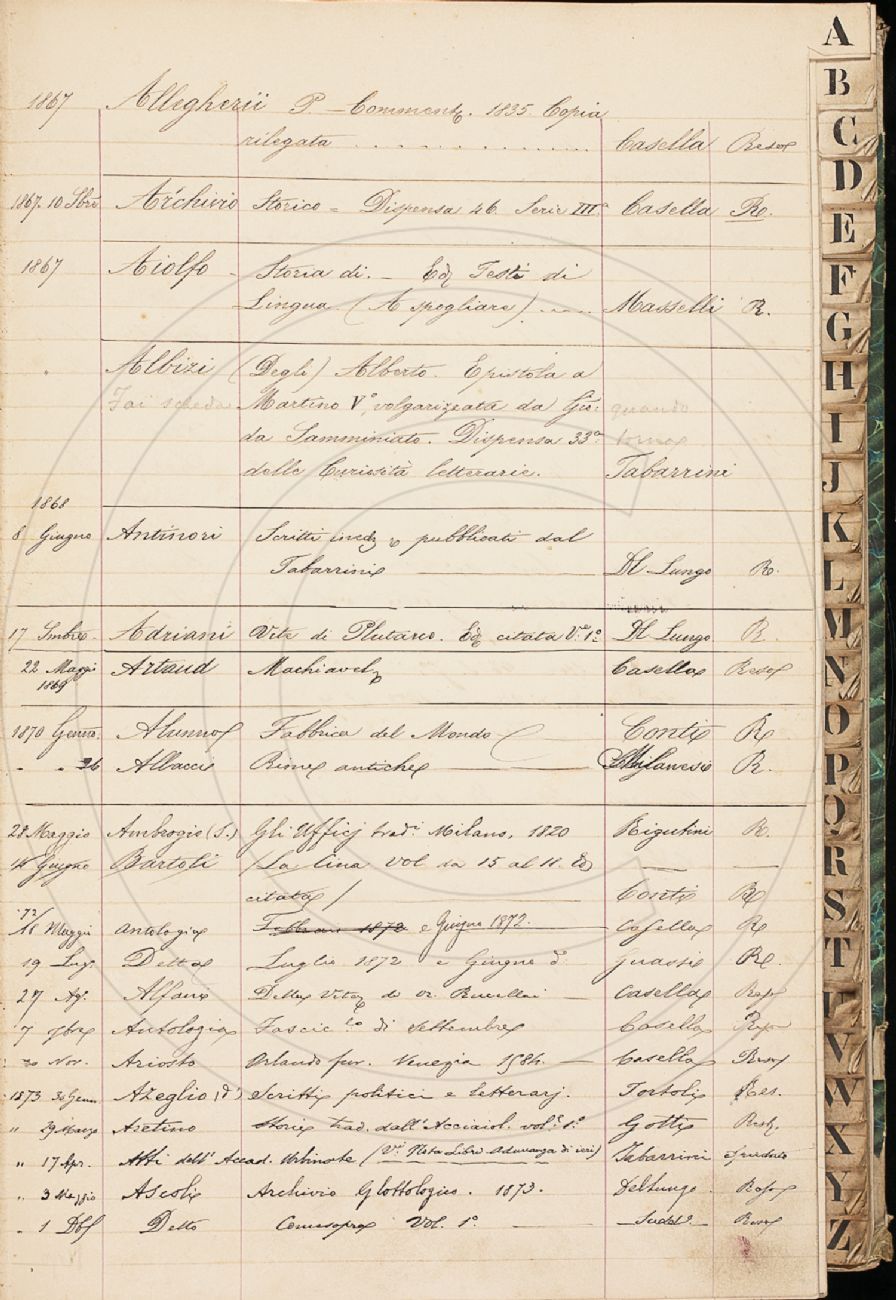 1867 Allegherii P. Comment. 1835. Copia
rilegata . . . . . . . . . . . . Casella Reso
1867. 10 Sbre Archivio Storico = Dispensa 46. Serie IIIa. Casella Re.
1867 Aiolfo - Storia di. - Ed Testi di
Lingua. (A spogliare) ..... Masselli R.
Albizi (Degli) Alberto. Epistola a
Fai scheda Martino V°, volgarizzata da Gio: quando
da Samminiato. Dispensa 33a torna
delle Curiosità letterarie. Tabarrini
1868
8 Giugno Antinori Scritti ined e pubblicati dal
Tabarrini Del Lungo R.
17 Smbre. Adriani Vite di Plutarco. Ed citata V.e 1° Del Lungo R.
22 Maggi Artaud Machiavel Casella Reso
1869
1870 Genno. Alunno Fabbrica del Mondo Conti Re
" " 26 Allacci Rime antiche Milanesi R.
28 Maggio Ambrogio (S.) Gli Ufficj trad. Milano, 1820 Rigutini R.
14 Giugno Bartoli (La Cina vol da 15 al 18. Ed
citata) Conti Re
72/
18 Maggi Antologia Febbraio 1872 e Giugno 1872. Casella Re
19 Lug. Detta Luglio 1872 e Giugno d° Re.
27 Ag. Alfani Della Vita di Or. Rucellai Casella Reso
7 7bre Antologia Fascic.lo di Settembre Casella Reso
Nov. Ariosto Orlando fur. Venezia 1584. Casella Reso
1873 30 Genn. Azeglio (d') Scritti politici e letterarj. Tortoli Res.
" 29 Marzo Aretino Storie trad. dall'Acciaiol. vol.e 1° Gotti Rest.
" 17 Apr. Atti dell'Accad. Urbinate (Va Nota Libro Adunanza di ieri) Tabarrini
" 3 Maggio Ascoli Archivio Glottologico. 1873. Del Lungo Reso
" 1 Detto Comesopra Vol. 1°. Sudd.° Reso
A
B
C
D
E
F
G
H
I
J
K
L
M
N
O
P
Q
R
S
T
U
V
W
X
Y
Z